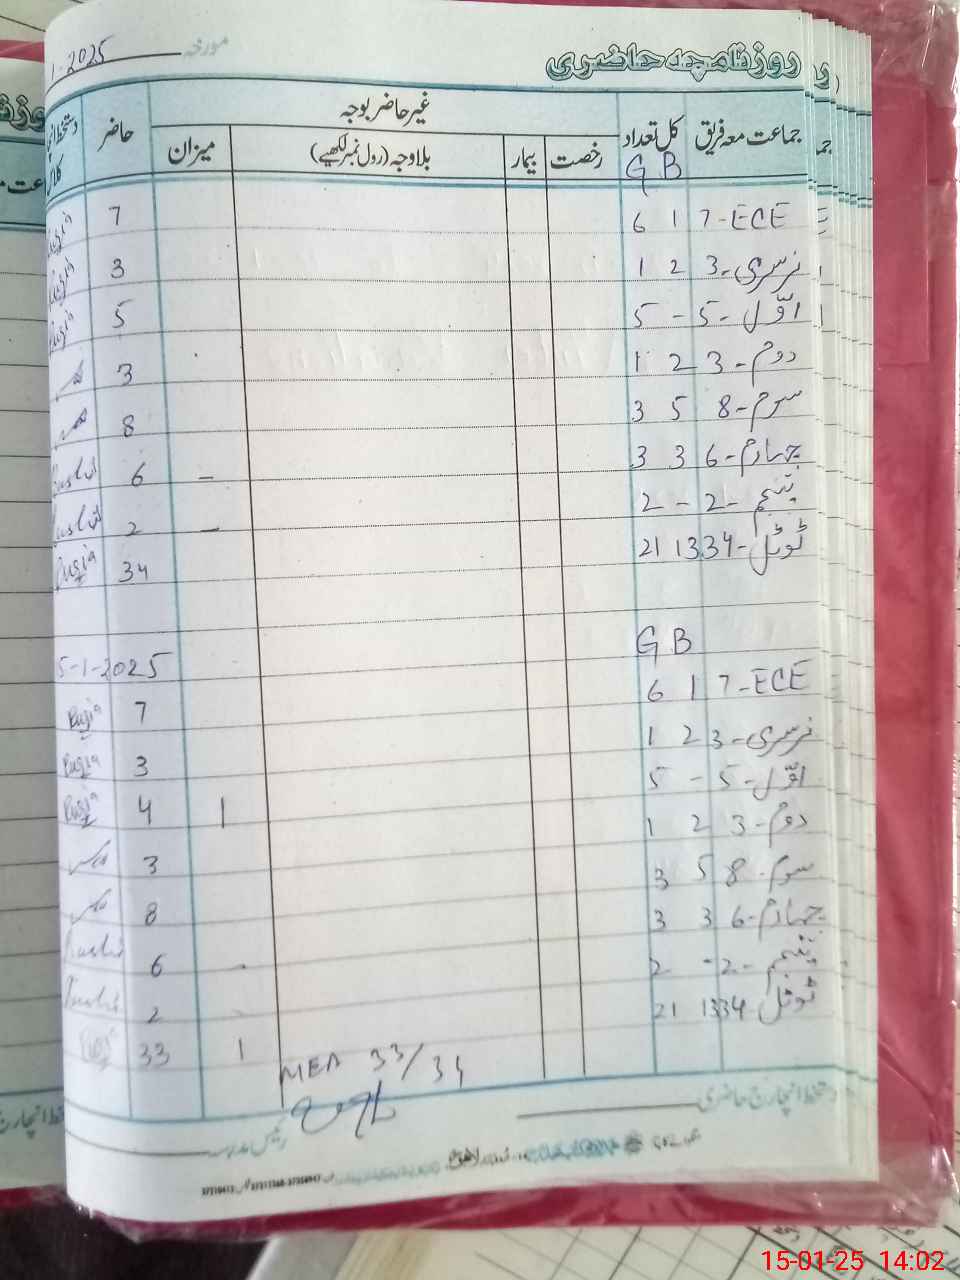 روزنامچہ حاضری
مورخہ 1-2025
جماعت معہ فریق کل تعداد غیر حاضر بوجہ حاضر
رخصت بیمار بلاوجہ (رول نمبر لکھیے) میزان
G B
ECE - 7 1 6 7 Ruqia
نرسری - 3 2 1 3 Ruqia
اوّل - 5 - 5 5 Ruqia
دوم - 3 2 1 3
سوم - 8 5 3 8
چہارم - 6 3 3 6 -
پنجم - 2 - 2 2 -
ٹوٹل - 34 13 21 34 Ruqia
G B
5-1-2025
ECE - 7 1 6 7 Ruqia
نرسری - 3 2 1 3 Ruqia
اوّل - 5 - 5 1 4 Ruqia
دوم - 3 2 1 3
سوم - 8 5 3 8
چہارم - 6 3 3 6 -
پنجم - 2 - 2 2
ٹوٹل 34 13 21 1 33
MEA 33/34
دستخط انچارج حاضری
رئیس مدرسہ
15-01-25 14:02